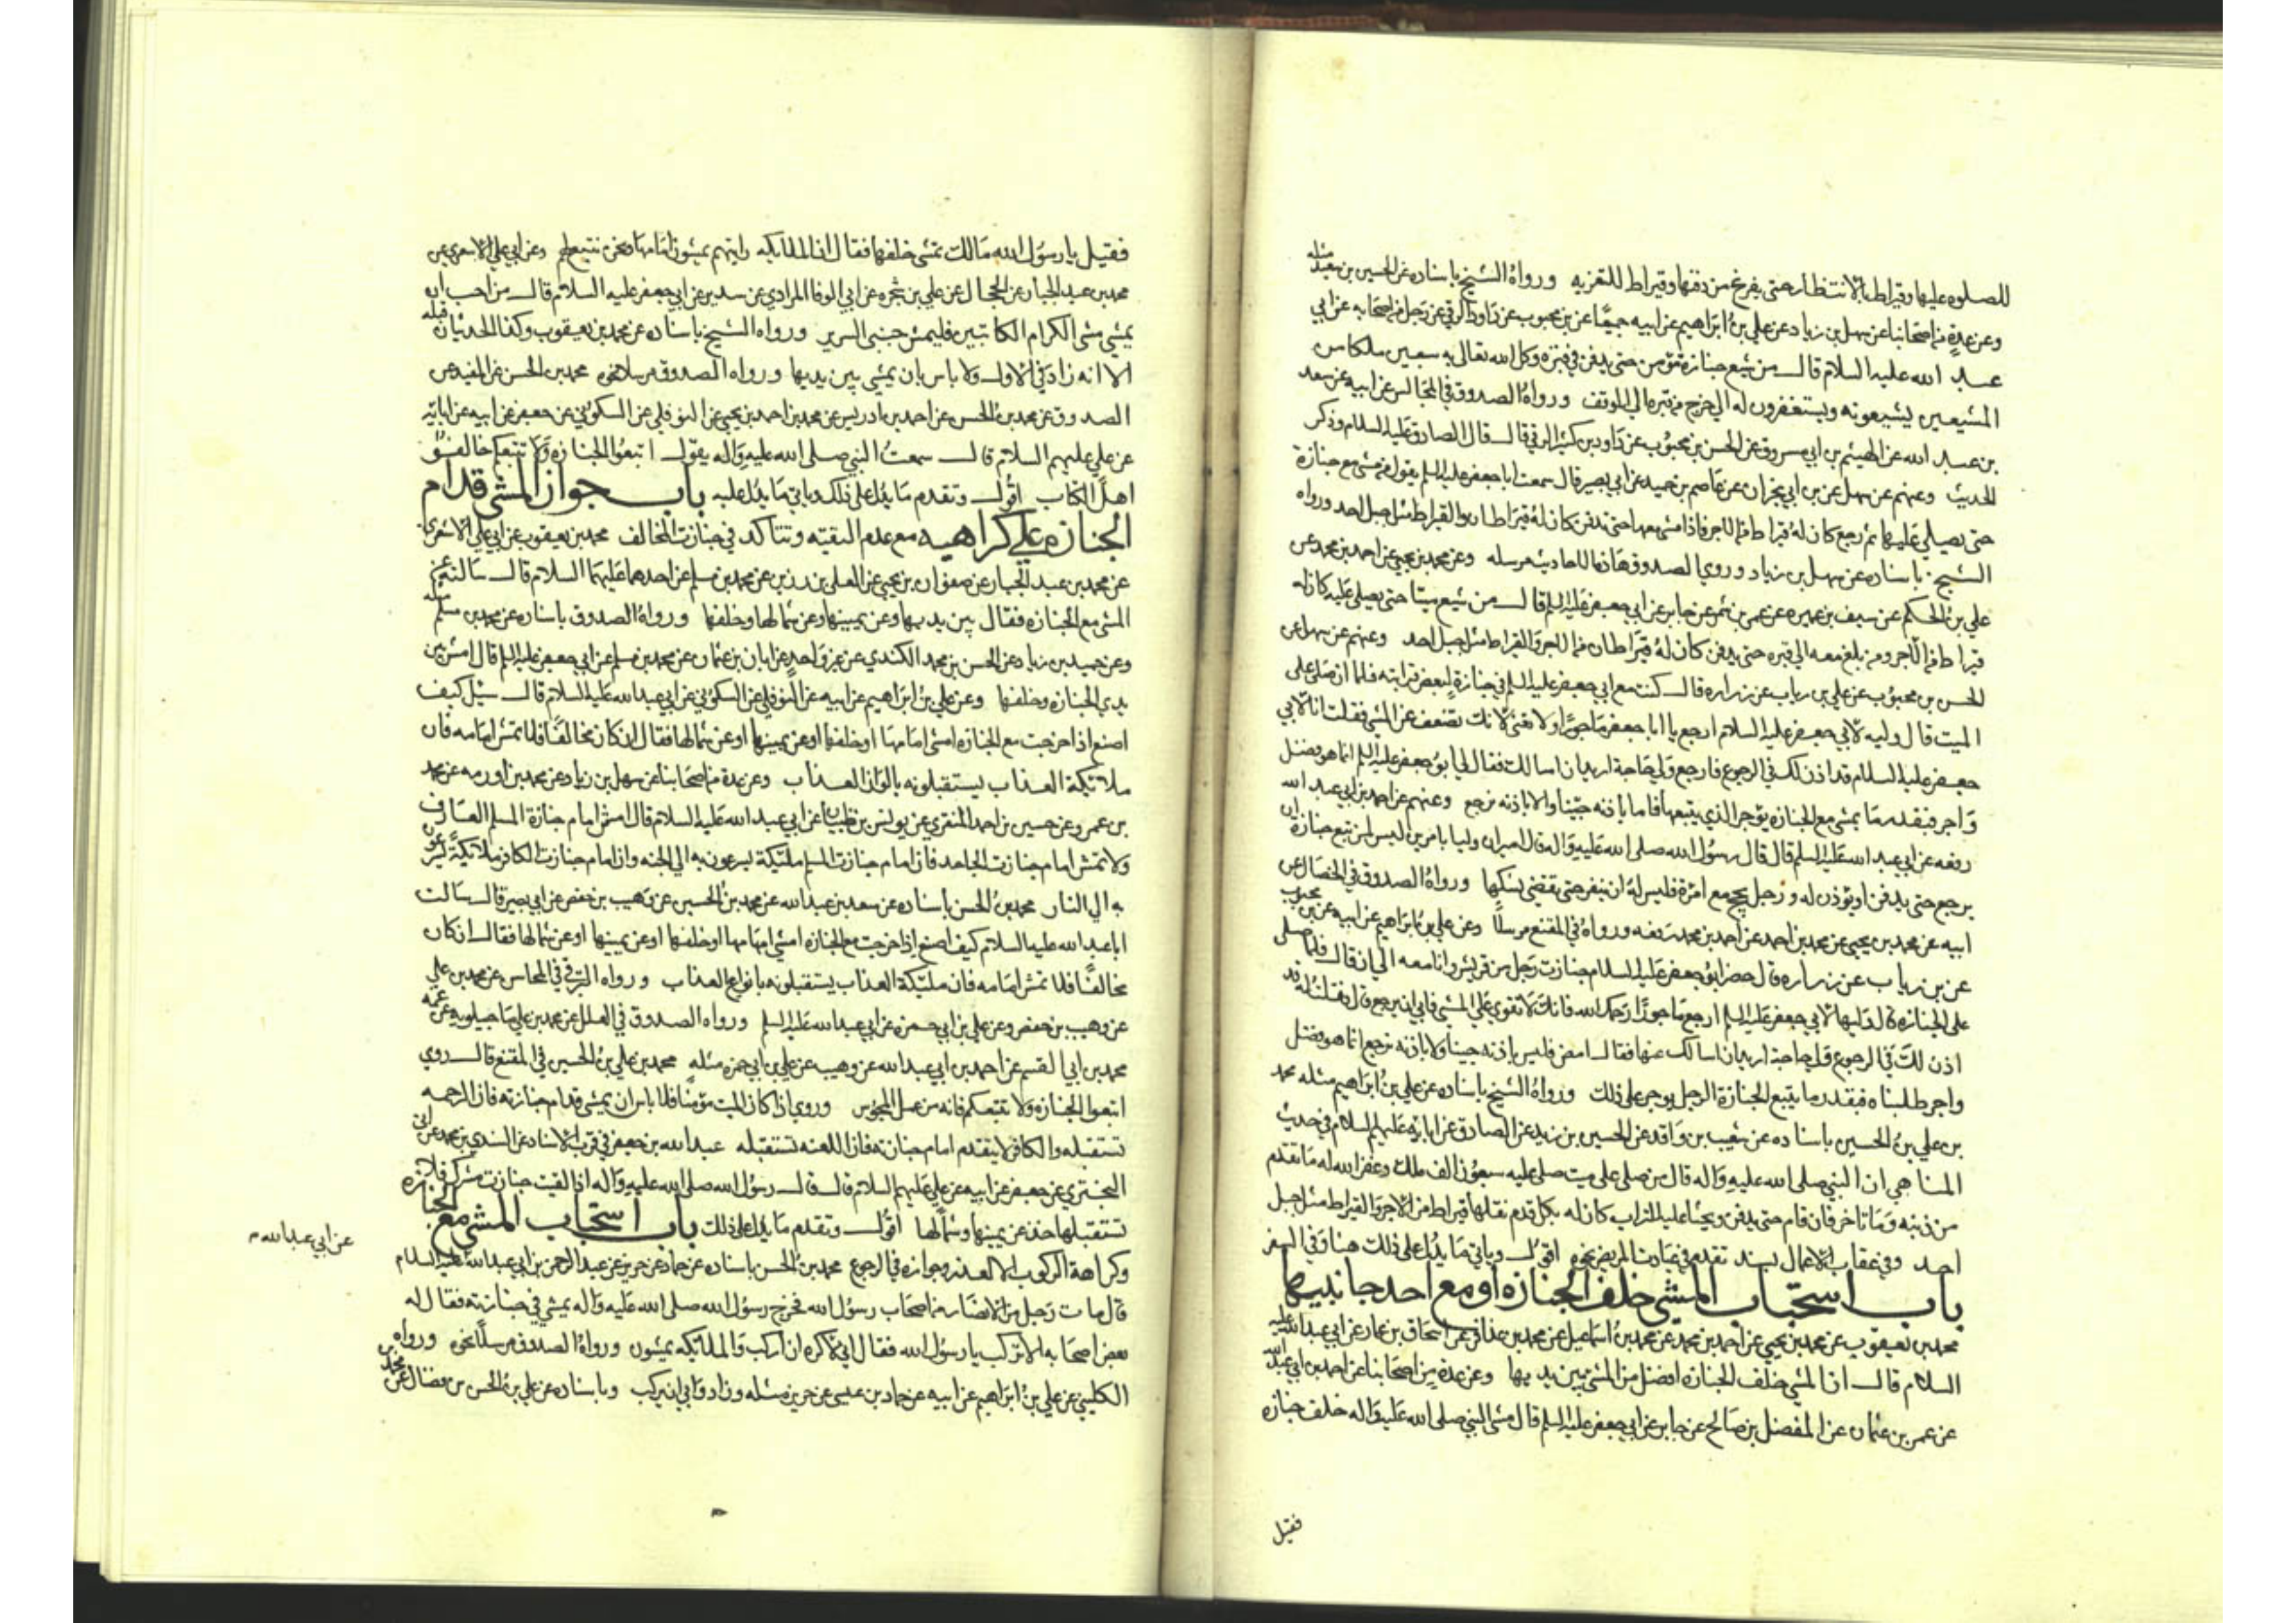 للصلوه عليها وقيراط بالانتظار حتى يفرغ من دفنها وقيراط للتعزيه ورواهُ الشيخ باسناده عن الحسين بن سعيد مثله
وعن عدةٍ من اصحابنا عن سهل بن زياد وعن علي بنُ ابراهيم عن ابيه جميعًا عن بن محبوب عن داود الرقي عن رجل من اصحابه عن ابي
عبد الله عليه السلام قال من شيع جنازة مؤمن حتى يدفن في قبره وكل الله تعالى به سبعين ملكا من
المشيعين يشيعونه ويستغفرون له الي خرج من قبره الي الموقف ورواهُ الصدوق في المجالس عن ابيه عن سعد
بن عبد الله عن الهيثم بن ابي مسروق عن الحسن بن محبوُب عن داود بن كثير الرقي قال قال الصادق عليه السلام وذكر
الحديث وعنهم عن سهل عن بن ابي نجران عن عاصم بن حميد عن ابي بصير قال سمعت ابا جعفر عليه السلم يقول من مشى مع جنازة
حتى يصلي عليها ثم رجع كان لهُ قيراط من الاجر فاذا مشى معها حتى تدفن كان لهُ قيراطان والقيراط مثل جبل احد ورواه
الشيخ باسناده عن سهل بن زياد وروي الصدوق هاذه الاحاديث مرسله وعن محمد بن يحيى عن احمد بن محمد عن
علي بنُ الحكم عن سيف بن عميره عن عمر بن شمر عن جابر عن ابي جعفر عليه السلم قال من شيع ميتا حتى يصلي عليه كان له
قيراط من الاجر ومن بلغ معه الي قبره حتى يدفن كان لهُ قيراطان من الاجر والقيراط مثل جبل احد وعنهم عن سهل عن
الحسن بن محبوُب عن علي بن رياب عن زراره قال كنت مع ابي جعفر عليه السلم في جنازة لبعض قرابته فلما ان صلى على
الميت قال وليه لابي جعفر عليه السلام ارجع يا ابا جعفر ماجورًا ولا تعنى لانك تضعف عن المشي فقلت انا لابي
جعفر عليه السلام قد اذن لك في الرجوع فارجع ولي حاجة اريد ان اسالك فقال لي ابوُ جعفر عليه السلم انما هو فضل
واجر فبقدر ما يمشي مع الجنازه يوجر الذي يتبعها فاما باذنه جينا ولا باذنه نرجع وعنهم عن احمد بن ابي عبد الله
رفعه عن ابي عبد الله عليه السلم قال قال رسوُل الله صلى الله عليه واله قال اميران وليسا باميرين ليس لمن تبع جنازة ان
يرجع حتى يدفن او يؤذن له ورجل يحج مع امرة فليس له ان ينفر حتى يقضي نسكها ورواهُ الصدوق في الخصال عن
ابيه عن محمد بن يحيى عن محمد بن احمد عن احمد بن محمد رفعه ورواهُ في المقنع مرسلاً وعن علي بنُ ابراهيم عن ابيه عن بن محبوب
عن بن رياب عن زراره قال حضر ابوُ جعفر عليه السلام جنازت رجل من قريش وانا معه الي ان قال فلما صلى
على الجنازه قال وليها لابي جعفر عليه السلم ارجع ماجورًا رحمك الله فانك لا تقوي على المشي فابى ان يرجع قال فقلت لهُ قد
اذن لك في الرجوع ولي حاجة اريد ان اسالك عنها فقال امض فليس باذنه جينا ولا باذنه نرجع انما هو فضل
واجر طلبناه فبقدر ما يتبع الجنازة الرجل يوجر على ذلك ورواهُ الشيخ باسناده عن علي بنُ ابراهيم مثله محمد
بن علي بنُ الحسين باسناده عن شعيب بن واقد عن الحسين بن زيد عن الصادق عن ابايه عليهم السلام في حديث
المناهي ان النبي صلى الله عليه واله قال من صلى على ميت صلى عليه سبعوُن الف ملك وغفر الله له ما تقدم
من ذنبه وما تاخر فان قام حتى يدفن ويحثا عليه التراب كان له بكل قدم نقلها قيراط من الاجر والقيراط مثل جبل
احد وفي عقاب الاعمال بسند تقدم في عيادت المريض نحوه اقوُل وياتي ما يدُل على ذلك هنا وفي السفر
باب استحباب المشي خلف الجنازه او مع احد جانبيها
محمد بن يعقوب عن محمد بن يحيى عن احمد بن محمد عن محمد بنُ اسماعيل عن محمد بن عذافر عن اسحاق بن عمار عن ابي عبد الله عليه
السلام قال ان المشي خلف الجنازه افضل من المشي بين يديها وعن عدة من اصحابنا عن احمد بن ابي عبد الله
عن عمرو بن عثمان عن المفضل بن صالح عن جابر عن ابي جعفر عليه السلم قال مشى النبي صلى الله عليه واله خلف جنازه
فقيل
فقيل يا رسوُل الله مالك تمشي خلفها فقال ان الملايكه رايتهم يمشون امامها ونحن نتبع لهم وعن ابي علي الاشعري عن
محمد بن عبد الجبار عن الحجال عن علي بن شجره عن ابي الوفا المرادي عن سدير عن ابي جعفر عليه السلام قال من احب ان
يمشي مشى الكرام الكاتبين فليمش جنبى السرير ورواه الشيخ باسناده عن محمد بن يعقوب وكذا الحديثان قبله
الا انه زاد في الاول ولا باس بان يمشي بين يديها ورواه الصدوق مرسلا نحوه محمد بن الحسن عن المفيد عن
الصدوق عن محمد بنُ الحسن عن احمد بن ادريس عن محمد بن احمد بن يحيى عن النوفلي عن السكوني عن جعفر عن ابيه عن ابايه
عن علي عليهم السلام قال سمعتُ النبي صلى الله عليه واله يقوُل اتبعوُا الجنازه ولا تتبعكم خالفوُا
اهل الكتاب اقُول وتقدم ما يدُل على ذلك وياتي ما يدُل عليه باب جواز المشي قدام
الجنازه علي كراهيه مع عدم التقيه وتتاكد في جنازت المخالف محمد بن يعقوب عن ابي علي الاشعري
عن محمد بن عبد الجبار عن صفوان بن يحيى عن العلي بن رزين عن محمد بن مسلم عن احدهما عليهما السلام قال سالته عن
المشي مع الجنازه فقال بين يديها وعن يمينها وعن شمالها وخلفها ورواهُ الصدوق باسناده عن محمد بن مسلم مثله
وعن حميد بن زياد عن الحسن بن محمد الكندي عن غير واحدٍ عن ابان بن عثمان عن محمد بن مسلم عن ابي جعفر عليه السلم قال امش بين
يدي الجنازه وخلفها وعن علي بن ابراهيم عن ابيه عن النوفلي عن السكوُني عن ابي عبد الله عليه السلام قال سيُل كيف
اصنع اذا خرجت مع الجنازه امشي امامها او خلفها او عن يمينها او عن شمالها فقال ان كان مخالفًا فلا تمش امامه فان
ملائيكة العذاب يستقبلونه بالوان العذاب وعن عدة من اصحابنا عن سهل بن زياد عن محمد بن اورمه عن محمد
بن عمرو عن حسين بن احمد المنقري عن يونس بن ظبيان عن ابي عبد الله عليه السلام قال امش امام جنازة المسلم العارف
ولا تمش امام جنازت الجاحد فان امام جنازت المسلم ملئيكة يسرعون به الي الجنه وان امام جنازت الكافر ملائيكة يسرعون
به الي النار محمد بنُ الحسن باسناده عن سعد بن عبد الله عن محمد بنُ الحسين عن وهيب بن حفص عن ابي بصير قال سالت
ابا عبد الله عليه السلام كيف اصنع اذا خرجت مع الجنازه امشي امامها او خلفها او عن يمينها او عن شمالها فقال ان كان
مخالفًا فلا تمش امامه فان ملئيكة العذاب يستقبلونه بانواع العذاب ورواه البرقي في المحاسن عن محمد بن علي
عن وهيب بن حفص وعن علي بن ابي حمزه عن ابي عبد الله عليه السلم ورواه الصدوق في العلل عن محمد بن علي ماجيلويه عن عمه
محمد بن ابي القسم عن احمد بن ابي عبد الله عن وهيب عن علي بن ابي حمزه مثله محمد بن علي بنُ الحسين في المقنع قال روي
اتبعوا الجنازه ولا تتبعكم فانه من عمل المجوس وروي اذا كان الميت مؤمنًا فلا باس ان يمشي قدام جنازته فان الرحمه
تستقبله والكافر لا يتقدم امام جنازته فان اللعنه تستقبله عبد الله بن جعفر في قرب الاسناد عن السندي بن محمد عن ابي
البختري عن جعفر عن ابيه عن علي عليهم السلام قال قال رسوُل الله صلى الله عليه واله اذا لقيت جنازت مشرك فلا
تستقبلها خذ عن يمينها وشمالها اقوُل وتقدم ما يدل على ذلك باب استحباب المشي مع الجنازه
وكراهة الركوب الا لعذر وجوازه في الرجوع محمد بنُ الحسن باسناده عن حماد عن حريز عن عبد الرحمن بن ابي عبد الله عليه السلام
عن ابي عبد الله م
قال مات رجل من الانصار من اصحاب رسوُل الله فخرج رسوُل الله صلى الله عليه واله يمشي في جنازته فقال له
بعض اصحابه الا تركب يا رسوُل الله فقال اني لاكره ان اركب والملائيكه يمشون ورواهُ الصدوق مرسلاً نحوه ورواه
الكليني عن علي بنُ ابراهيم عن ابيه عن حماد بن عيسى عن حريز مثله وزاد وابي ان يركب وباسناده عن علي بنُ الحسن بن فضال عن محمد بن